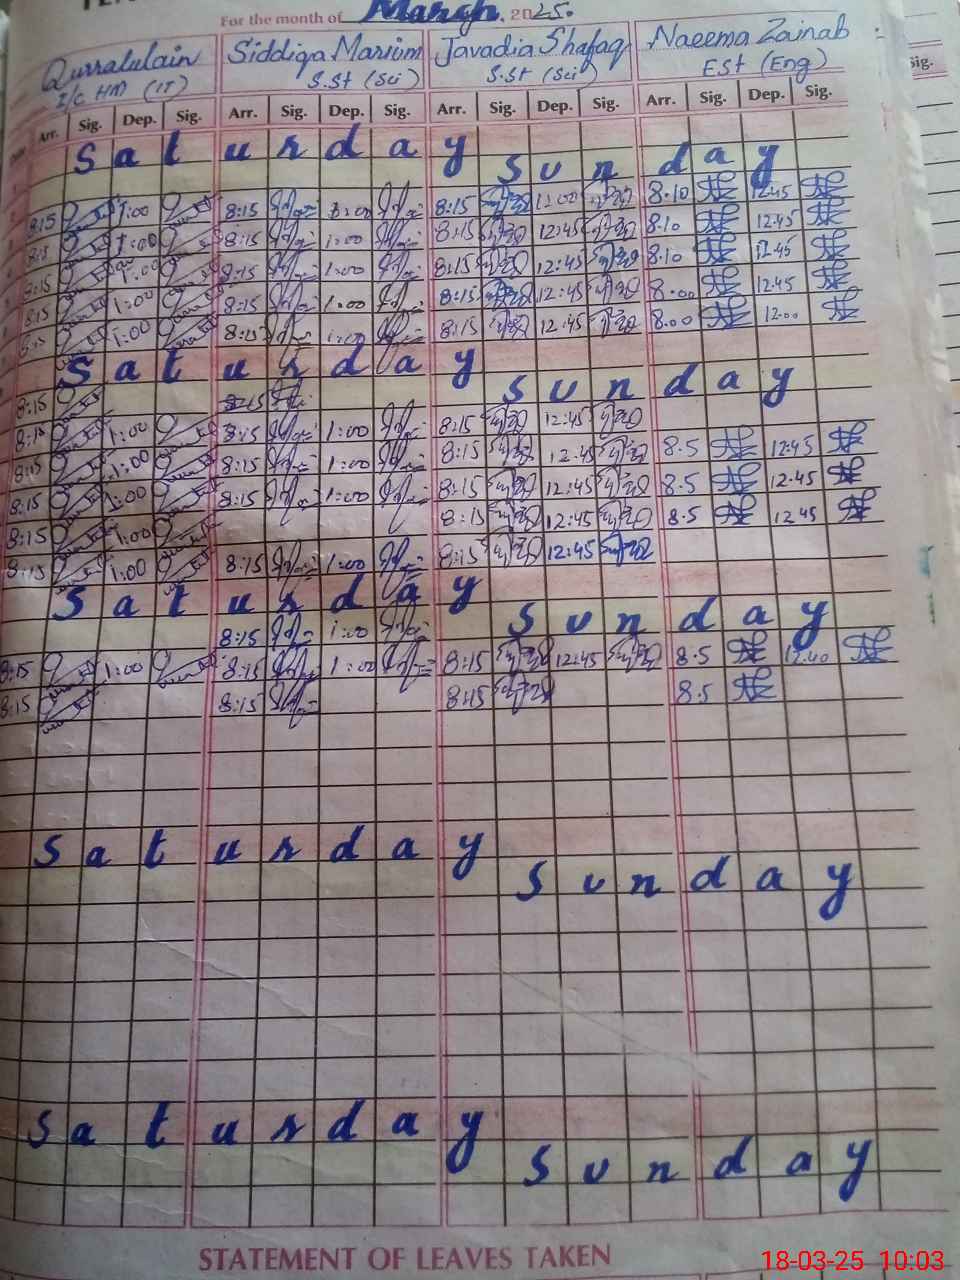 For the month of March, 2025.
Qurratulain Siddiqa Marium Javadia Shafaq Naeema Zainab
I/C HM (IT) S.St (Sci) S.St (Sci) ESt (Eng)
Sig.
Arr. Sig. Dep. Sig. Arr. Sig. Dep. Sig. Arr. Sig. Dep. Sig. Arr. Sig. Dep. Sig.
Saturday
Sunday
8:15 1:00 8:15 1:00 8:15 12:00 8.10 12.45
8:15 1:00 8:15 1:00 8:15 12:45 8.10 12.45
8:15 1:00 8:15 1:00 8:15 12:45 8.10 12.45
8:15 1:00 8:15 1:00 8:15 12:45 8.00 12.45
8:15 1:00 8:15 1:00 8:15 12:45 8.00 12.00
Saturday
Sunday
8:15 8:15
8:15 1:00 8:15 1:00 8:15 12:45
8:15 1:00 8:15 1:00 8:15 12:45 8.5 12:45
8:15 1:00 8:15 1:00 8:15 12:45 8.5 12.45
8:15 1:00 8:15 12:45 8.5 12 45
8:15 1:00 8:15 1:00 8:15 12:45
Saturday
Sunday
8:15 1:00
8:15 1:00 8:15 1:00 8:15 12:45 8.5 12.40
8:15 8:15 8:15 8.5
Saturday
Sunday
Saturday
Sunday
STATEMENT OF LEAVES TAKEN
18-03-25 10:03